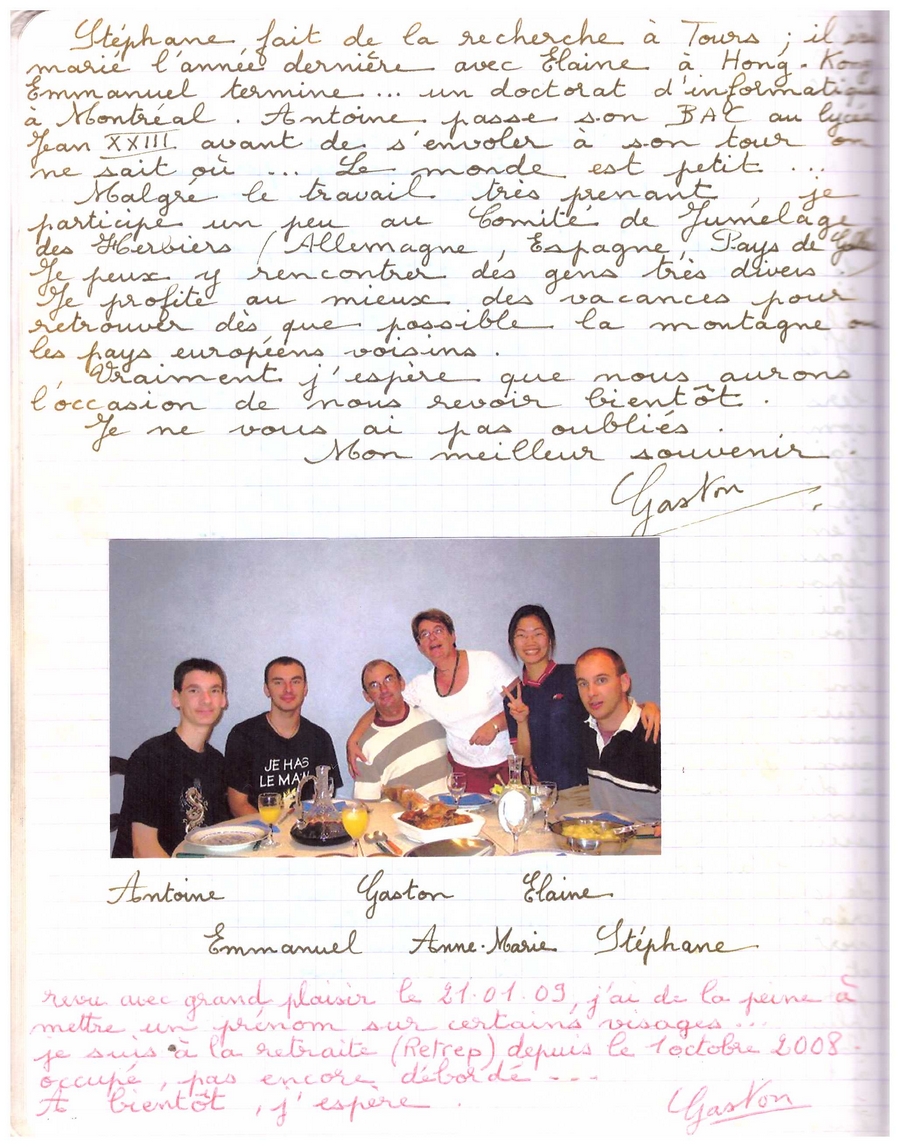 Stéphane fait de la recherche à Tours ; il
marié l'année dernière avec Elaine à Hong-Kong
Emmanuel termine ... un doctorat d'informatique
à Montréal. Antoine passe son BAC au lycée
Jean XXIII avant de s'envoler à son tour on
ne sait où ... Le monde est petit ...
Malgré le travail très prenant, je
participe un peu au Comité de Jumelage
des Herbiers (Allemagne, Espagne, Pays de
Je peux y rencontrer des gens très divers.
Je profite au mieux des vacances pour
retrouver dès que possible la montagne ou
les pays européens voisins.
Vraiment j'espère que nous aurons
l'occasion de nous revoir bientôt.
Je ne vous ai pas oubliés.
Mon meilleur souvenir.
Gaston
JE HAS
LE MAN
Antoine Gaston Elaine
Emmanuel Anne-Marie Stéphane
revu avec grand plaisir le 21.01.09, j'ai de la peine à
mettre un prénom sur certains visages...
je suis à la retraite (Retrep) depuis le 1octobre 2008.
occupé, pas encore débordé ---
A bientôt, j'espere.
Gaston